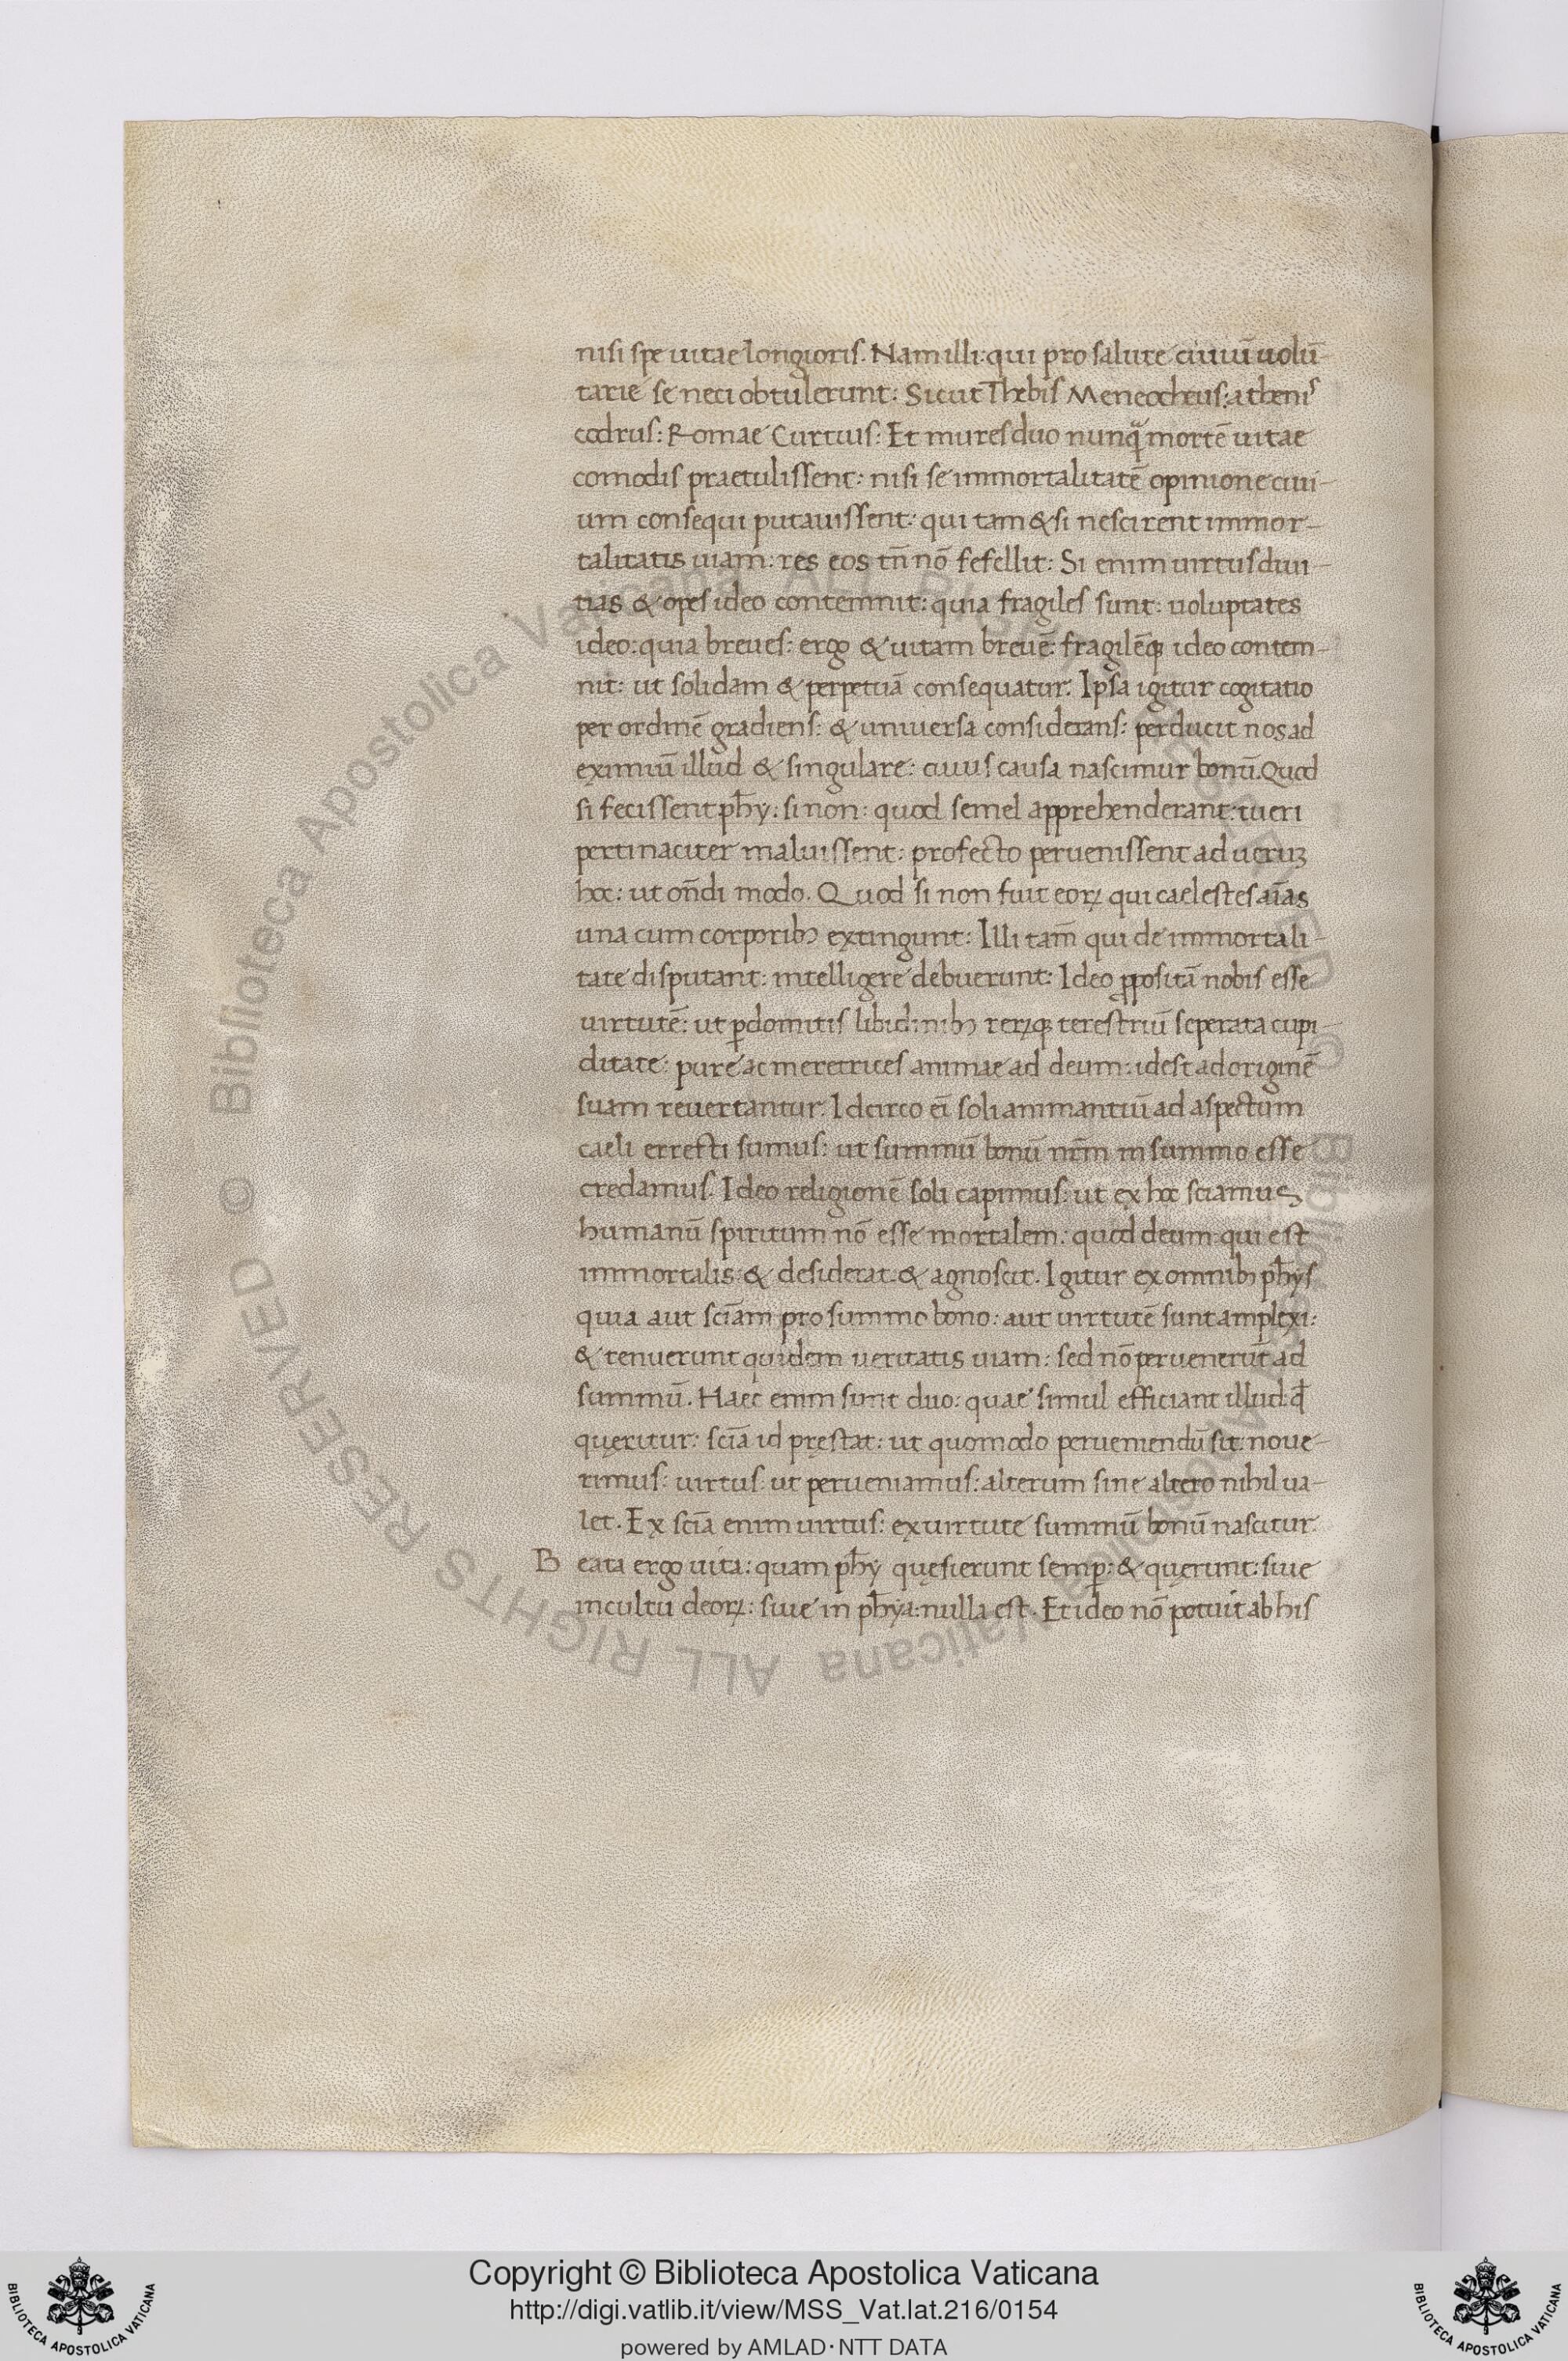 nisi spe uitae longioris. Nam illi: qui pro salute ciuiū uolū-
tarie se neci obtulerunt: Sicut Thebis Meneotheus: athenis
codrus: Romae Curtius: Et mures duo nunq̃ mortē uitae
comodis praetulissent: nisi se immortalitatē opinione ciui-
um consequi putauissent: qui tam & si nescirent immor-
talitatis uiam: res eos tn̄ nō fefellit: Si enim uirtus diui-
tias & opes ideo contemnit: quia fragiles sunt: uoluptates
ideo: quia breues: ergo & uitam breuē: fragilēqꝫ ideo contem-
nit: ut solidam & perpetuā consequatur. Ipsa igitur cogitatio
per ordinē gradiens: & uniuersa considerans: perducit nos ad
eximiū illud & singulare: cuius causa nascimur bonū. Quod
si fecissent ph̄y: si non: quod semel apprehenderant: tueri
pertinaciter maluissent: profecto peruenissent ad ueruꝫ
hoc: ut on̄di modo. Quod si non fuit eoꝝ qui caelestes aīas
una cum corporibꝫ extingunt: Illi tam̄ qui de immortali-
tate disputant: intelligere debuerunt: Ideo ꝓpositā nobis esse
uirtutē: ut ꝑdomitis libidinibꝫ reꝝqꝫ terestriū seperata cupi-
ditate: pure ac meretrices animae ad deum: idest ad originē
suam reuertantur. Idcirco eī soli animantiū ad aspectum
caeli errecti sumus: ut summū bonū nr̄m in summo esse
credamus. Ideo religionē soli capimus: ut ex hoc sciamus
humanū spiritum nō esse mortalem: quod deum: qui est
immortalis: & desiderat: & agnoscit. Igitur ex omnibꝫ ph̄ys
quia aut sciam̄ pro summo bono: aut uirtutē sunt amplexi:
& tenuerunt quidem ueritatis uiam: sed nō peruenerūt ad
summū. Haec enim sunt duo: quae simul efficiant illud: qđ
queritur: scīa id prestat: ut quomodo perueniendū sit: noue-
rimus: uirtus: ut perueniamus: alterum sine altero nihil ua-
let. Ex scīa enim uirtus: ex uirtute summū bonū nascitur.
Beata ergo uita: quam ph̄y quęsierunt semꝑ: & quęrunt: siue
in cultu deoꝝ: siue in ph̄ya: nulla est. Et ideo nō potuit ab his
© Biblioteca Apostolica Vaticana ALL RIGHTS RESERVED © Biblioteca Apostolica Vaticana ALL RIGHTS RESERVED
Copyright © Biblioteca Apostolica Vaticana
http://digi.vatlib.it/view/MSS_Vat.lat.216/0154
powered by AMLAD·NTT DATA
BIBLIOTECA APOSTOLICA VATICANA
BIBLIOTECA APOSTOLICA VATICANA